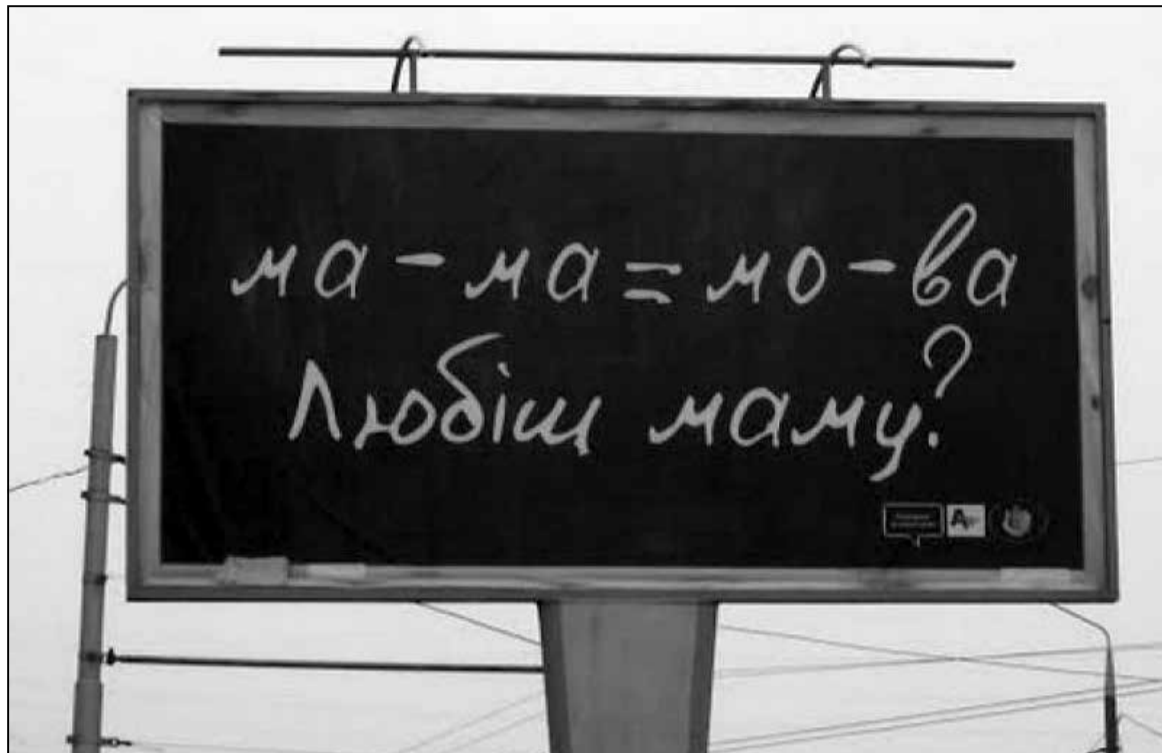 ма - ма = мо - ва
Любіш маму?